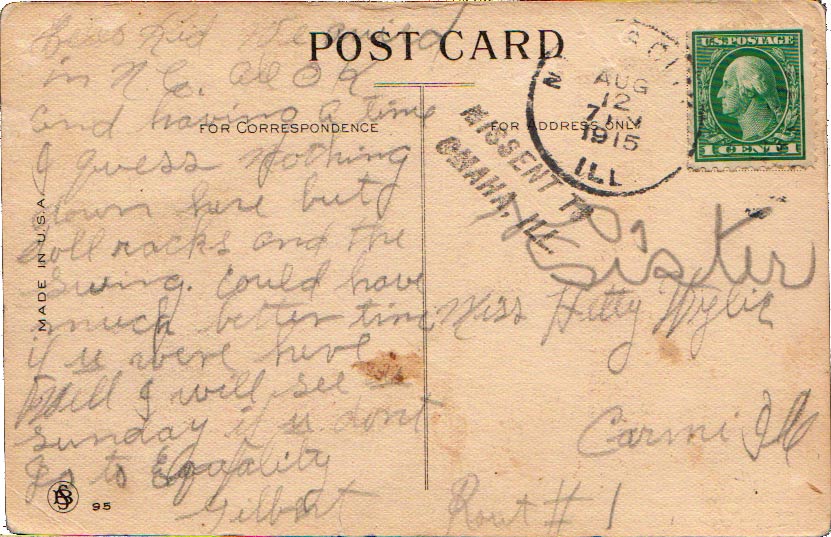 POST CARD
Dear Kid Arrived
in N.C. all OK
and having a time
FOR CORRESPONDENCE
I guess Nothing
down here but
doll racks and the
swing. Could have
much better time
if u were here
Well I will see u
sunday if u dont
go to Equality
Gilbert
MADE IN U.S.A.
95
FOR ADDRESS ONLY
AUG
12
1915
ILL.
MISSENT TO
OMAHA, ILL.
U.S. POSTAGE
1 CENT 1
Sister
Miss Hetty Wylie
Carmi Ill
Rout # 1